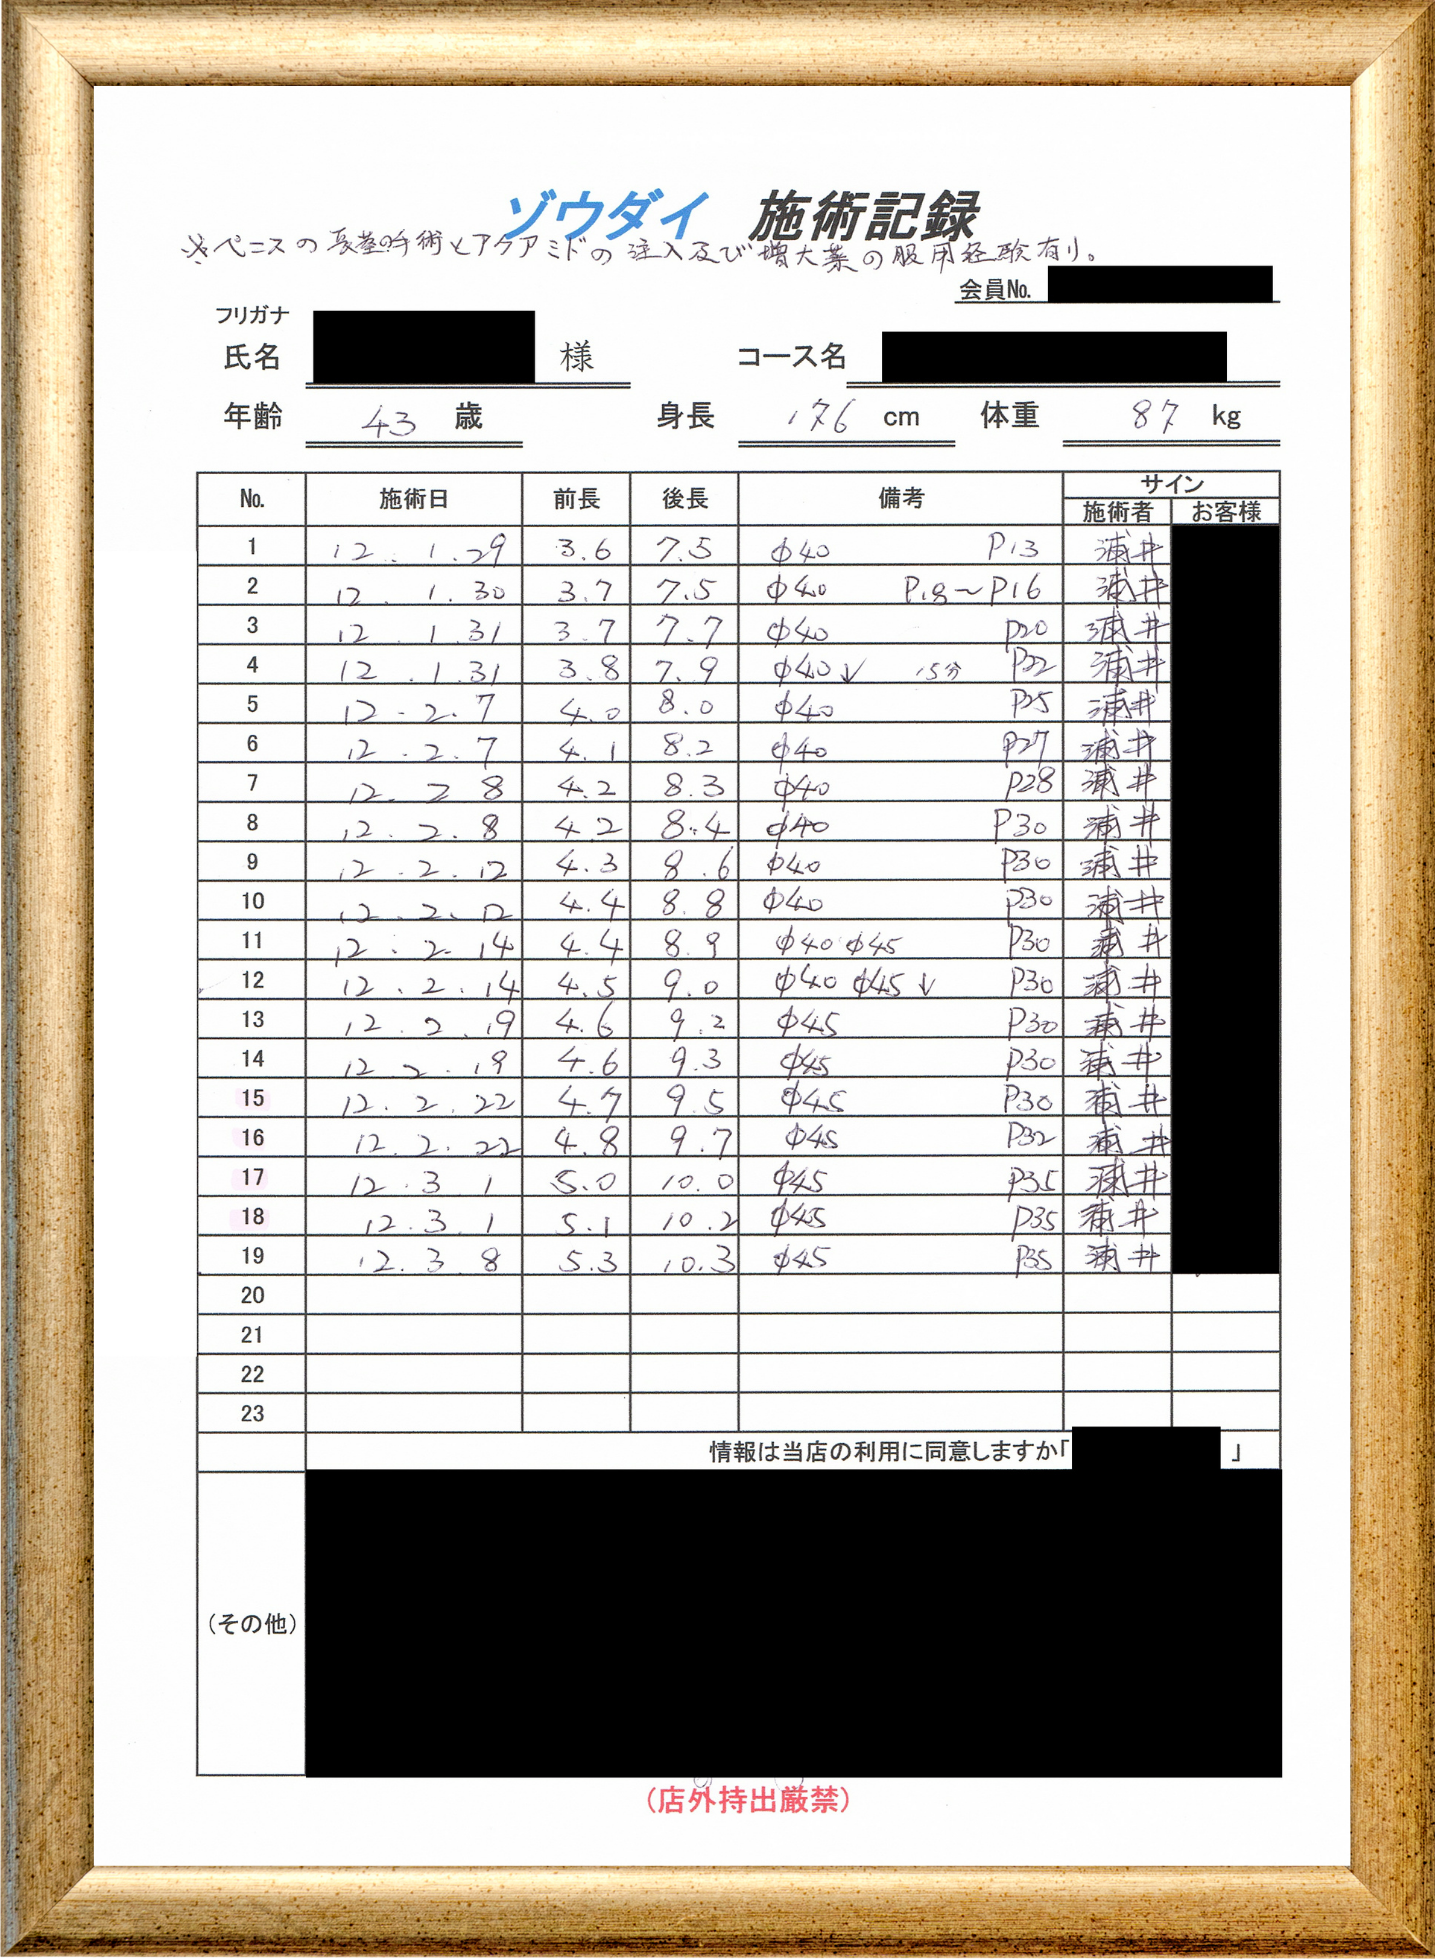 ゾウダイ 施術記録
※ペニスの長茎手術とアクアミドの注入及び増大薬の服用経験有り。
会員No.
フリガナ
氏名 様 コース名
年齢 43 歳 身長 176 cm 体重 87 kg
No. 施術日 前長 後長 備考 サイン
施術者 お客様
1 12.1.29 3.6 7.5 φ40 P13 浦井
2 12.1.30 3.7 7.5 φ40 P18～P16 浦井
3 12.1.31 3.7 7.7 φ40 P20 浦井
4 12.1.31 3.8 7.9 φ40↓ 15分 P22 浦井
5 12.2.7 4.0 8.0 φ40 P25 浦井
6 12.2.7 4.1 8.2 φ40 P27 浦井
7 12.2 8 4.2 8.3 φ40 P28 浦井
8 12.2.8 4.2 8.4 φ40 P30 浦井
9 12.2.12 4.3 8.6 φ40 P30 浦井
10 12.2.12 4.4 8.8 φ40 P30 浦井
11 12.2.14 4.4 8.9 φ40 φ45 P30 浦井
12 12.2.14 4.5 9.0 φ40 φ45↓ P30 浦井
13 12.2.19 4.6 9.2 φ45 P30 浦井
14 12 2.19 4.6 9.3 φ45 P30 浦井
15 12.2.22 4.7 9.5 φ45 P30 浦井
16 12.2.22 4.8 9.7 φ45 P32 浦井
17 12.3 1 5.0 10.0 φ45 P35 浦井
18 12.3.1 5.1 10.2 φ45 P35 浦井
19 12.3.8 5.3 10.3 φ45 P35 浦井
20
21
22
23
情報は当店の利用に同意しますか「 」
（その他）
（店外持出厳禁）